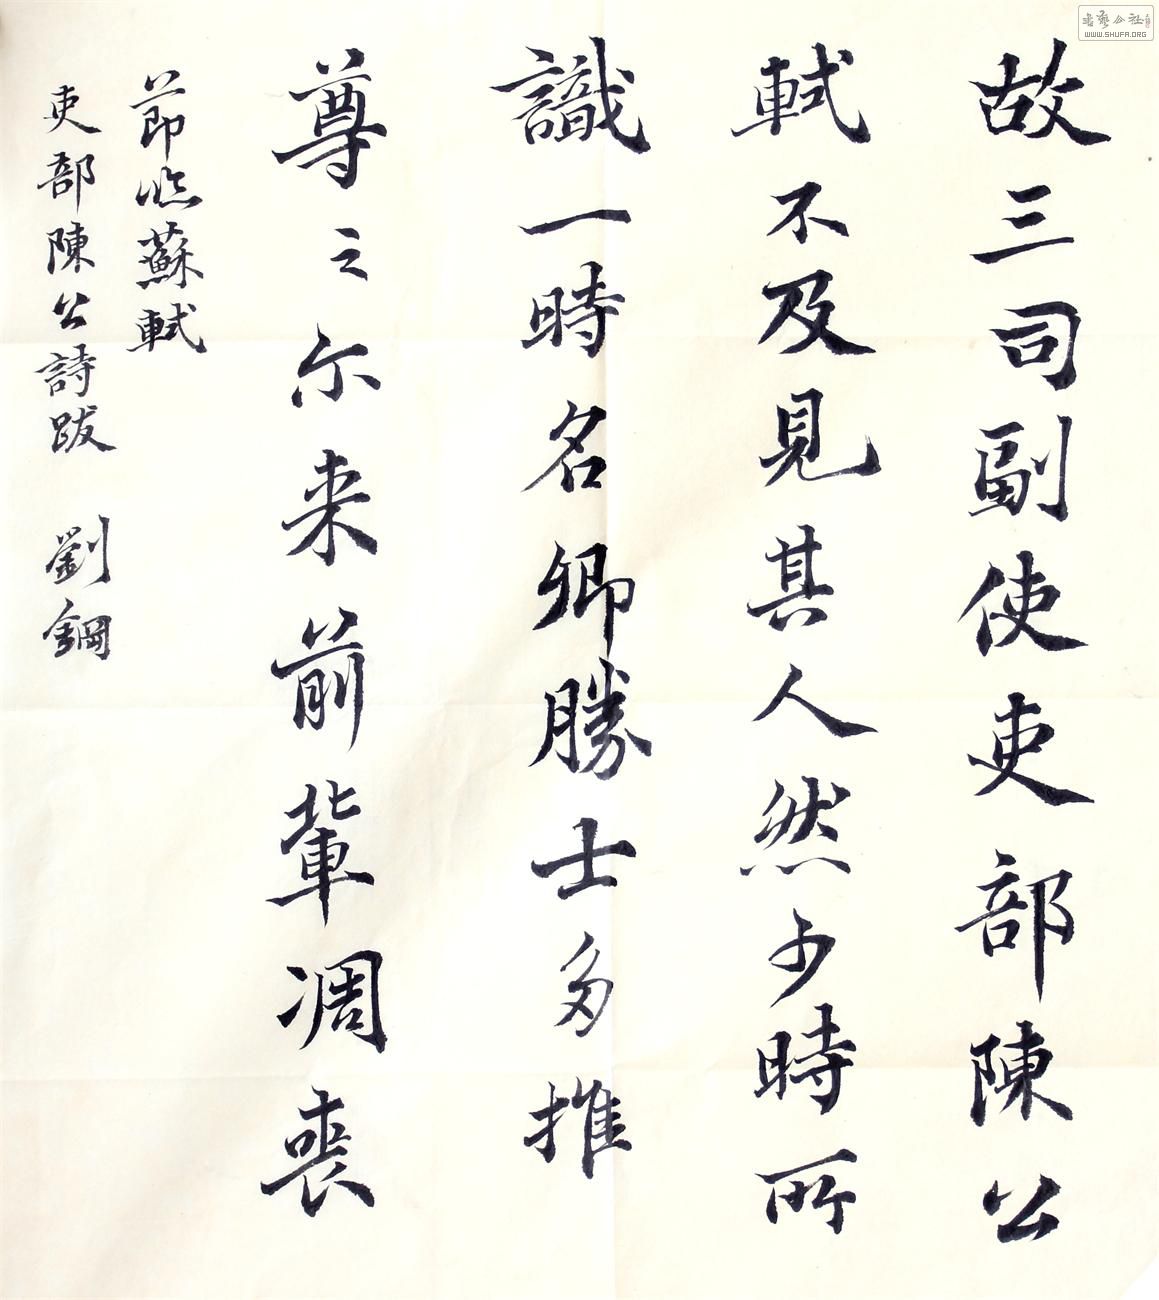 故三司副使吏部陳公
軾不及見其人然少時所
識一時名卿勝士多推
尊之尔来前輩凋喪
節臨蘇軾
吏部陳公詩跋 劉鋼
書藝公社
WWW.SHUFA.ORG